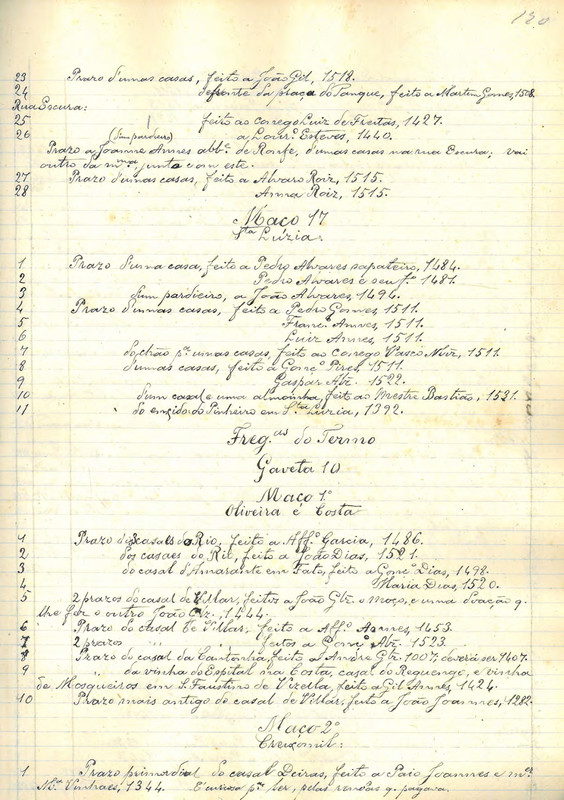 180
23 Prazo d'umas casas, feito a João Gil, 1518.
24 defronte da praça do Tanque, feito a Martim Gomes, 1508.
Rua Escura:
25 feito ao conego Luiz de Freitas, 1427.
26 (d'um pardieiro) a Lourº Esteves, 1440.
Prazo a Joanne Annes abbº de Ronfe, d'umas casas na rua Escura; vai
outro da mma, junto com este.
27 Prazo d'umas casas, feito a Alvaro Roiz, 1515.
28 Anna Roiz, 1515.
Maço 17
Sta Luzia.
1 Prazo d'uma casa, feito a Pedro Alvares sapateiro, 1484.
2 Pedro Alvares e seu fº 1481.
3 d'um pardieiro, a João Alvares, 1494.
4 Prazo d'umas casas, feito a Pedro Gomes, 1511.
5 Francº Annes, 1511.
6 Luiz Annes, 1511.
7 do chão pª umas casas, feito ao conego Vasco 1511.
8 d'umas casas, feito a Gonçº Pires, 1511.
9 Gaspar 1522.
10 d'um casal e uma almoinha, feito ao Mestre Bastião, 1521.
11 do enxido do Pinheiro em Sta Luzia, 1392.
Freg.as do Termo
Gaveta 10
Maço 1º
Oliveira e Costa
1 Prazo dos casaes do Rio, feito a Affº Garcia, 1486.
2 dos casaes do Rio, feito a João Dias, 1521.
3 do casal d'Amarante em Fato, feito a Gonçº Dias, 1498.
4 Maria Dias, 1520.
5 2 prazos do casal de Villar, feitos a João Glz o moço, e uma doação q.
lhe fez o outro João 1444.
6 Prazo do casal de Villar, feito a Affº Annes, 1453.
7 2 prazos " " feitos a Gonçº 1523.
8 Prazo do casal da Cantonha, feito a André 1007; deverá ser 1407.
9 " da vinha do Espital na Costa, casal do Reguengo, e vinha
de Mosqueiros em S. Faustino de Vizella, feito a Gil Annes, 1424.
10 Prazo mais antigo do casal de Villar, feito a João Joannes, 1282.
Maço 2º
Creixomil:
1 Prazo primordial do casal Deiras, feito a Paio Joannes e mer
1344. É curioso pª ler, pelas rendas q. pagava.